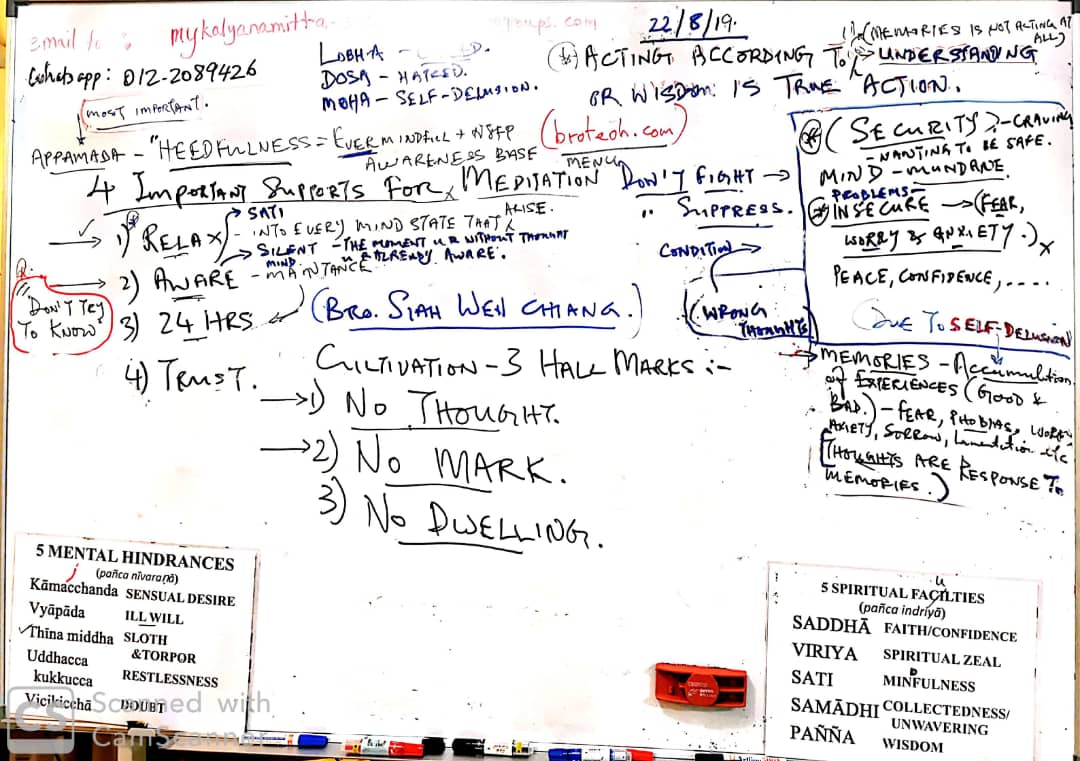 Email to : mykalyanamitta-
oups.com
Whatsapp: 012-2089426
22/8/19.
(MEMORIES IS NOT ACTING AT ALL)
LOBHA -
DOSA - HATRED.
MOHA - SELF-DELUSION.
(*) ACTING ACCORDING TO UNDERSTANDING
OR WISDOM: IS TRUE ACTION.
MOST IMPORTANT.
APPAMADA - "HEEDFULNESS = EVER MINDFUL + NSFP
AWARENESS BASE
(broteoh.com)
MENU
4 IMPORTANT SUPPORTS FOR MEDITATION
1) RELAX
SATI
- INTO EVERY MIND STATE THAT ARISE.
SILENT MIND - THE MOMENT U R WITHOUT THOUGHT
U R ALREADY AWARE.
2) AWARE - MAINTANCE
3) 24 HRS
4) TRUST.
"DON'T TRY
TO KNOW"
(BRO. SIAH WEN CHIANG.)
DON'T FIGHT →
" SUPPRESS.
CONDITION →
(WRONG
THOUGHTS)
(SECURITY) - CRAVING
- WANTING TO BE SAFE.
MIND - MUNDANE
PROBLEMS -
INSECURE → (FEAR,
WORRY & ANXIETY.)
PEACE, CONFIDENCE, .....
DUE TO SELF-DELUSION
MEMORIES - Accumulation
of EXPERIENCES (GOOD &
BAD.) - FEAR, PHOBIAS, WORRY,
AXIETY, SORROW, Lamentation etc
[THOUGHTS ARE RESPONSE TO
MEMORIES.)
CULTIVATION - 3 HALL MARKS :-
→1) NO THOUGHT.
→2) NO MARK.
3) NO DWELLING.
5 MENTAL HINDRANCES
(pañca nīvaraṇā)
Kāmacchanda SENSUAL DESIRE
Vyāpāda ILL WILL
Thīna middha SLOTH
&TORPOR
Uddhacca
kukkucca RESTLESSNESS
Vicikicchā DOUBT
5 SPIRITUAL FACILTIES
u
(pañca indriyā)
SADDHĀ FAITH/CONFIDENCE
VIRIYA SPIRITUAL ZEAL
SATI MINFULNESS
D
SAMĀDHI COLLECTEDNESS/
UNWAVERING
PAÑÑA WISDOM
CS Scanned with
CamScanner